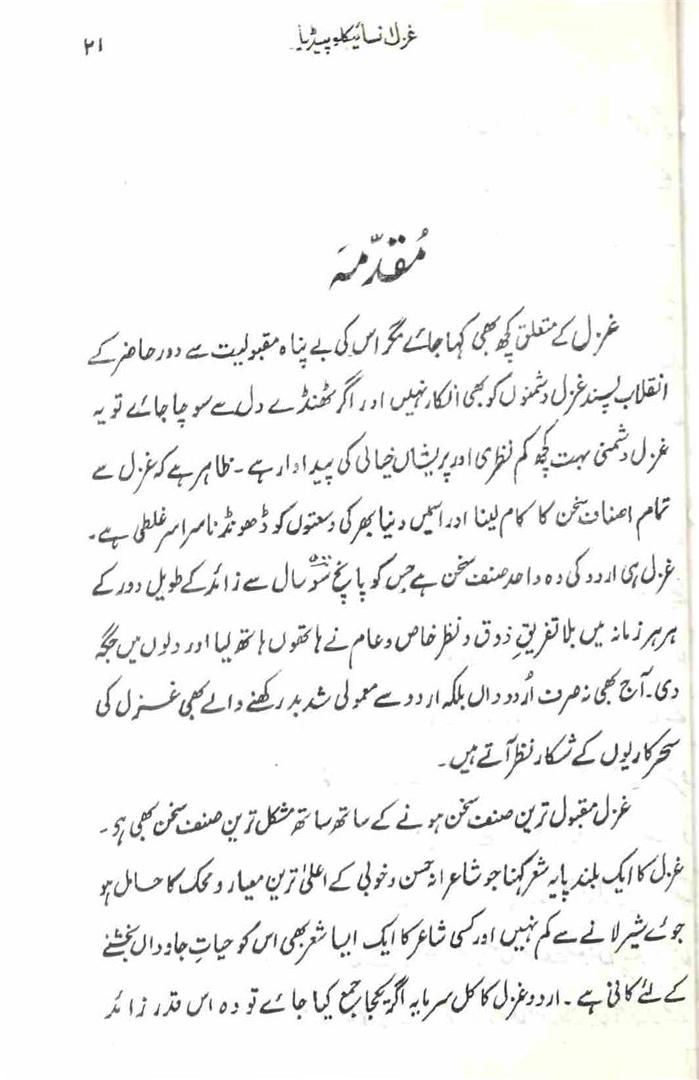 غزل انسائیکلو پیڈیا
۲۱
مُقدّمہ
غزل کے متعلق کچھ بھی کہا جائے مگر اس کی بے پناہ مقبولیت سے دور حاضر کے
انقلاب پسند غزل دشمنوں کو بھی انکار نہیں اور اگر ٹھنڈے دل سے سوچا جائے تو یہ
غزل دشمنی بہت کچھ کم نظری اور پریشاں خیالی کی پیداوار ہے۔ ظاہر ہے کہ غزل سے
تمام اصناف سخن کا کام لینا اور اسمیں دنیا بھر کی وسعتوں کو ڈھونڈنا سراسر غلطی ہے۔
غزل ہی اردو کی وہ واحد صنف سخن ہے جس کو پانچ سو سال سے زائد کے طویل دور کے
ہر ہر زمانہ میں بلا تفریقِ ذوق و نظر خاص و عام نے ہاتھوں ہاتھ لیا اور دلوں میں جگہ
دی۔ آج بھی نہ صرف اُردو داں بلکہ اردو سے معمولی شدبد رکھنے والے بھی غزل کی
سحر کاریوں کے شکار نظر آتے ہیں۔
غزل مقبول ترین صنف سخن ہونے کے ساتھ ساتھ مشکل ترین صنف سخن بھی ہے۔
غزل کا ایک بلند پایہ شعر کہنا جو شاعرانہ حسن و خوبی کے اعلیٰ ترین معیار و محک کا حامل ہو
جوئے شیر لانے سے کم نہیں اور کسی شاعر کا ایک ایسا شعر بھی اس کو حیاتِ جاوداں بخشنے
کے لئے کافی ہے۔ اردو غزل کا کل سرمایہ اگر یکجا جمع کیا جائے تو وہ اس قدر زائد